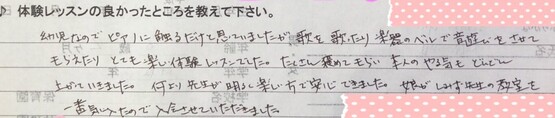 ♪ 体験レッスンの良かったところを教えて下さい。
幼児なのでピアノに触るだけと思っていましたが歌を歌ったり楽器のベルで音遊びをさせて
もらえたりとても楽しい体験レッスンでした。たくさん褒めてもらい本人のやる気もどんどん
上がっていきました。何より先生が明るく楽しい方で安心できました。娘がしみず先生の教室を
一番気に入ったので入会させていただきました。